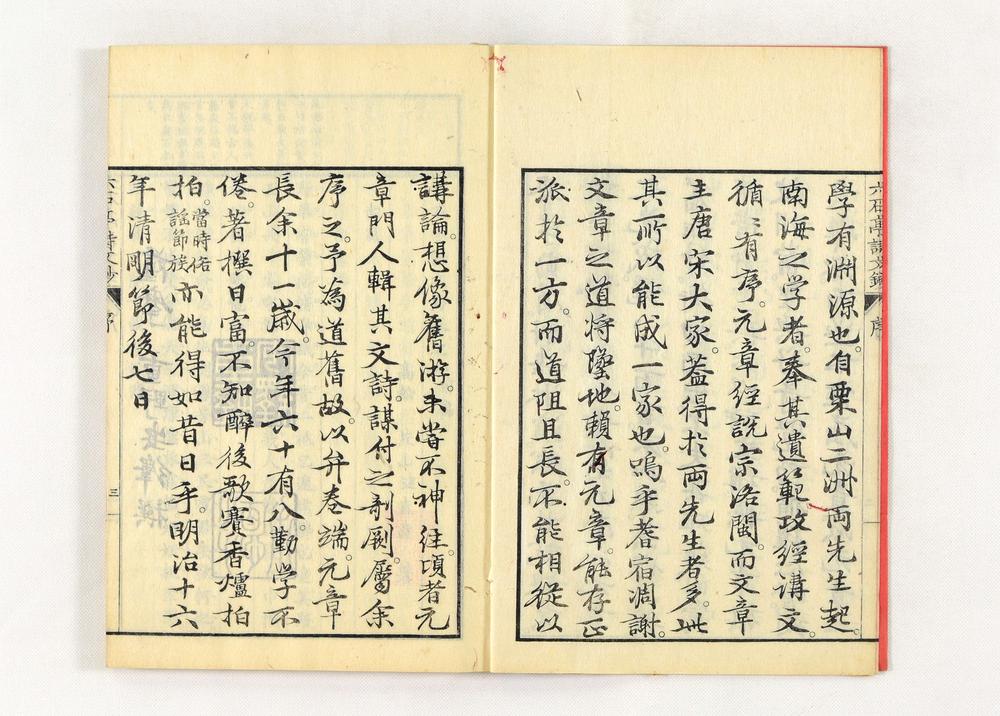 學有淵源也。自栗山二洲両先生起。
南海之学者。奉其遺範攻經講文。
循〻有序。元章經説宗洛閩。而文章
主唐宋大家。蓋得於両先生者多。此
其所以能成一家也。嗚乎耆宿凋謝。
文章之道将墜地。頼有元章。能存正
派於一方。而道阻且長。不能相從以
講論。想像舊游。未嘗不神往。頃者元
章門人輯其文詩。謀付之剞劂。屬余
序之。予為道舊故。以弁卷端。元章
長余十一歳。今年六十有八。勤学不
倦。著撰日富。不知醉後歌賽香爐拍
拍。當時俗謡節族亦能得如昔日乎。明治十六
年清明節後七日
序
三